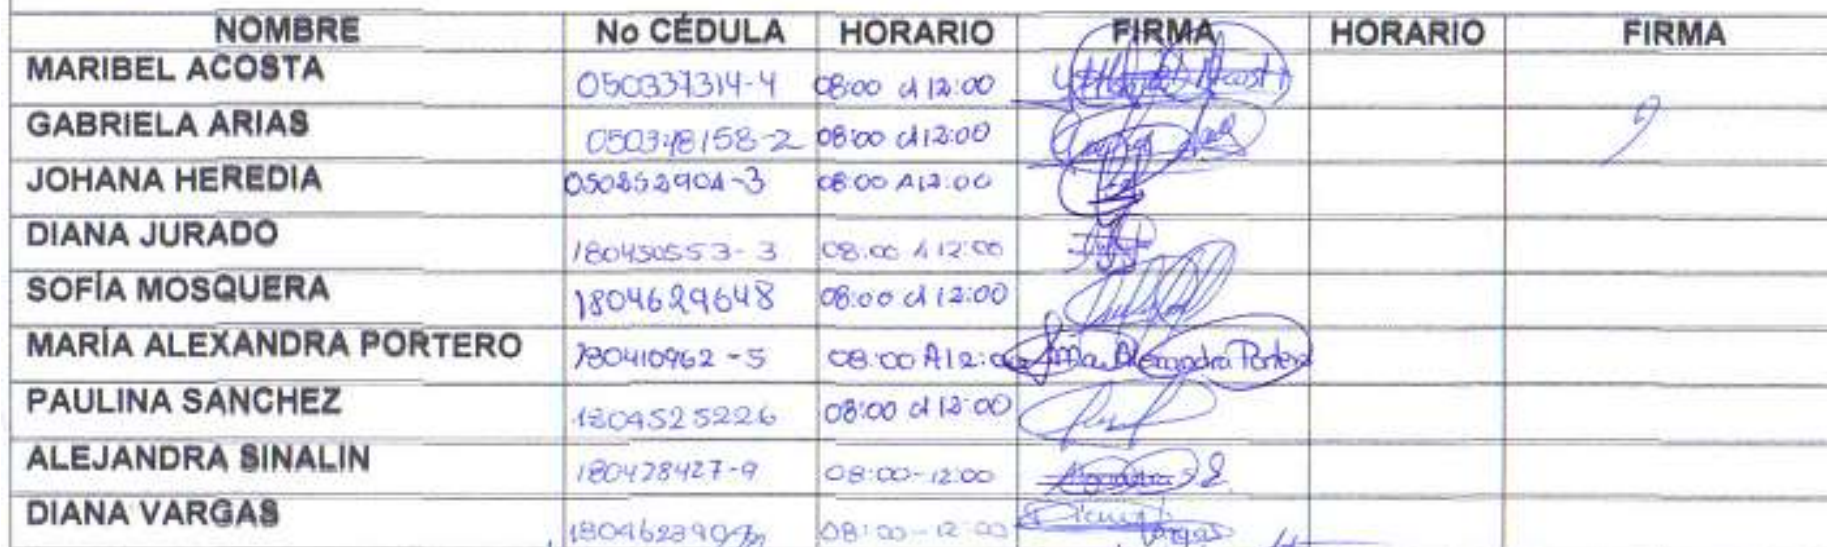 NOMBRE No CÉDULA HORARIO FIRMA HORARIO FIRMA
MARIBEL ACOSTA 050337314-4 08:00 a 12:00
GABRIELA ARIAS 050348158-2 08:00 a 12:00
JOHANA HEREDIA 050252904-3 08:00 A 12:00
DIANA JURADO 180450553-3 08:00 A 12:00
SOFÍA MOSQUERA 1804629648 08:00 a 12:00
MARÍA ALEXANDRA PORTERO 180410962-5 08:00 A 12:00 Ma. Alexandra Portero
PAULINA SANCHEZ 1804525226 08:00 a 12:00
ALEJANDRA SINALIN 180428427-9 08:00-12:00
DIANA VARGAS 08:00-12:00 Diana Vargas